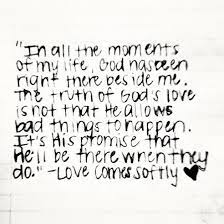 "In all the moments
of my life, God has been
right there beside me.
The truth of God's love
is not that He allows
bad things to happen.
It's His promise that
He'll be there when they
do." -Love Comes Softly ♥